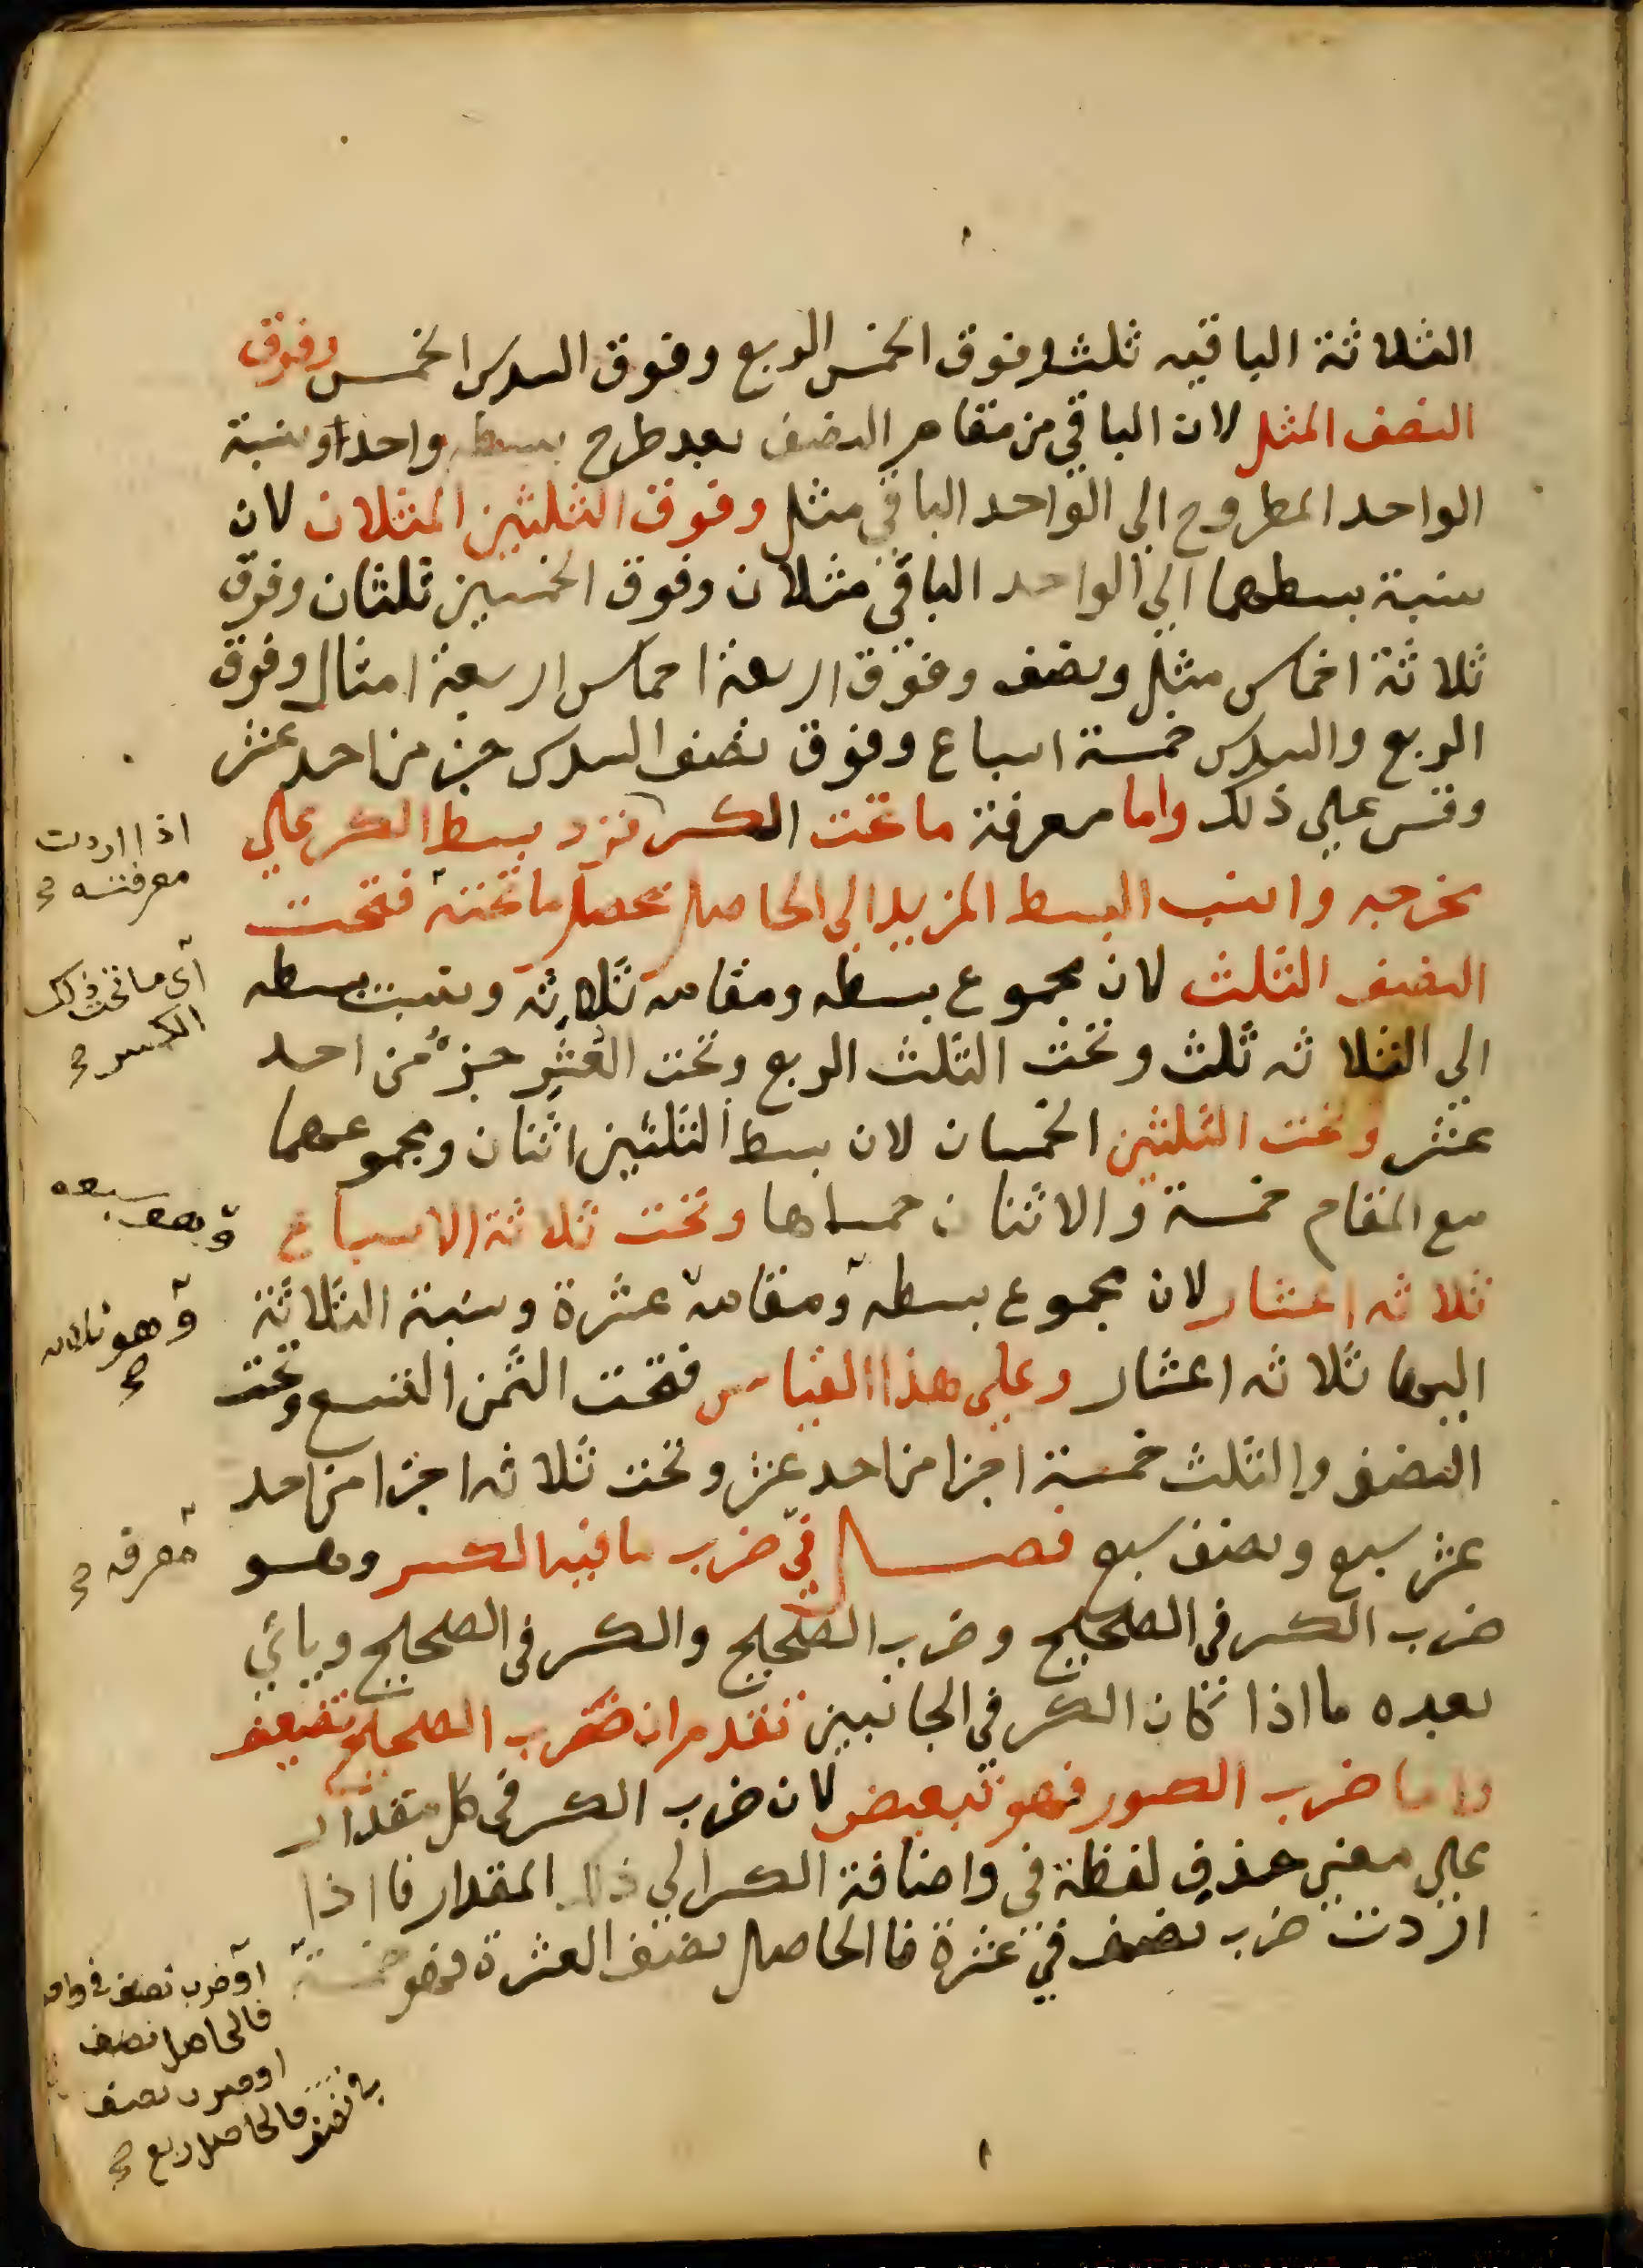 الثلاثة الباقيه ثلث وفوق الخمس الربع وفوق السدس الخمس وفوق
النصف المثل لان الباقي من مقام النصف بعد طرح بسطه واحدا ونسبة
الواحد المطروح الى الواحد الباقي مثل وفوق الثلثين المثلان لان
نسبة بسطهما الي الواحد الباقي مثلان وفوق الخمسين ثلثان وفوق
ثلاثة اخماس مثل ونصف وفوق اربعة اخماس اربعة امثال وفوق
الربع والسدس خمسة اسباع وفوق نصف السدس جز من احد عشر
وقس علي ذلك واما معرفة ما تحت الكسر فزد بسط الكسر علي
مخرجه وانسب البسط المزيد الى الحاصل يحصل ما تحته فتحت
النصف الثلث لان مجموع بسطه ومقامه ثلاثه ونسبت بسطه
الي الثلاثه ثلث وتحت الثلث الربع وتحت العشر جزء من احد
عشر وتحت الثلثين الخمسان لان بسط الثلثين اثنان ومجموعهما
مع المقام خمسة والاثنان خمساها وتحت ثلاثة الاسباع
ثلاثه اعشار لان مجموع بسطه ومقامه عشرة ونسبة الثلاثة
اليها ثلاثه اعشار وعلي هذا القياس فتحت الثمن التسع وتحت
النصف والثلث خمسة اجزا من احد عشر وتحت ثلاثه اجزا من احد
عشر سبع ونصف سبع فصل في ضرب ما فيه الكسر وهو
ضرب الكسر في الصحيح وضرب الصحيح والكسر في الصحيح وياتي
بعده ما اذا كان الكسر في الجانبين تقدم ان ضرب الصحيح تضعيف
واما ضرب الكسور فهو تبعيض لان ضرب الكسر في كل مقدار
علي معني حذف لفظة في واضافة الكسر الي ذلك المقدار فااذا
اردت ضرب نصف في عشرة فاالحاصل نصف العشرة فهو خمسة
اذا اردت
معرفته
اي ما تحت ذلك
الكسر
وهو سبعه
وهو ثلاثه
معرفه
او ضرب نصف في واحد
فالحاصل نصف
او ضرب نصف
في نصف فالحاصل ربع